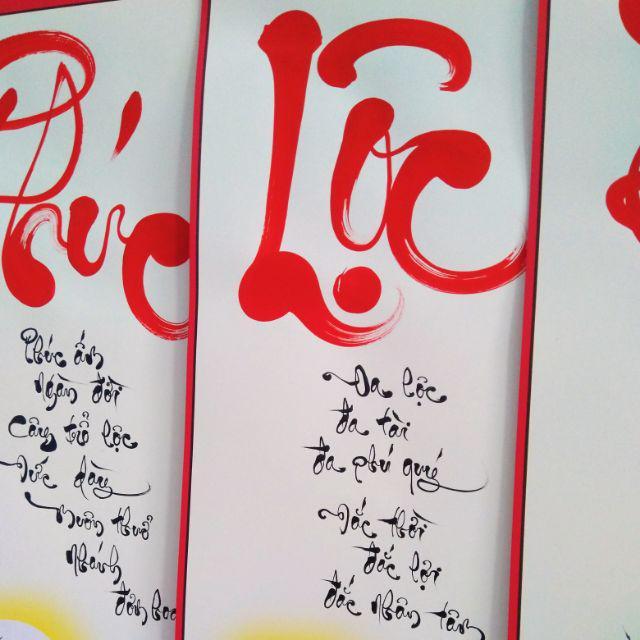 Phúc
Phúc ấm
ngàn đời
Cây trổ lộc
Đức dày
muôn thuở
nhánh
đơm hoa
Lộc
Đa lộc
đa tài
đa phú quý
Đắc thời
đắc lợi
đắc nhân tâm